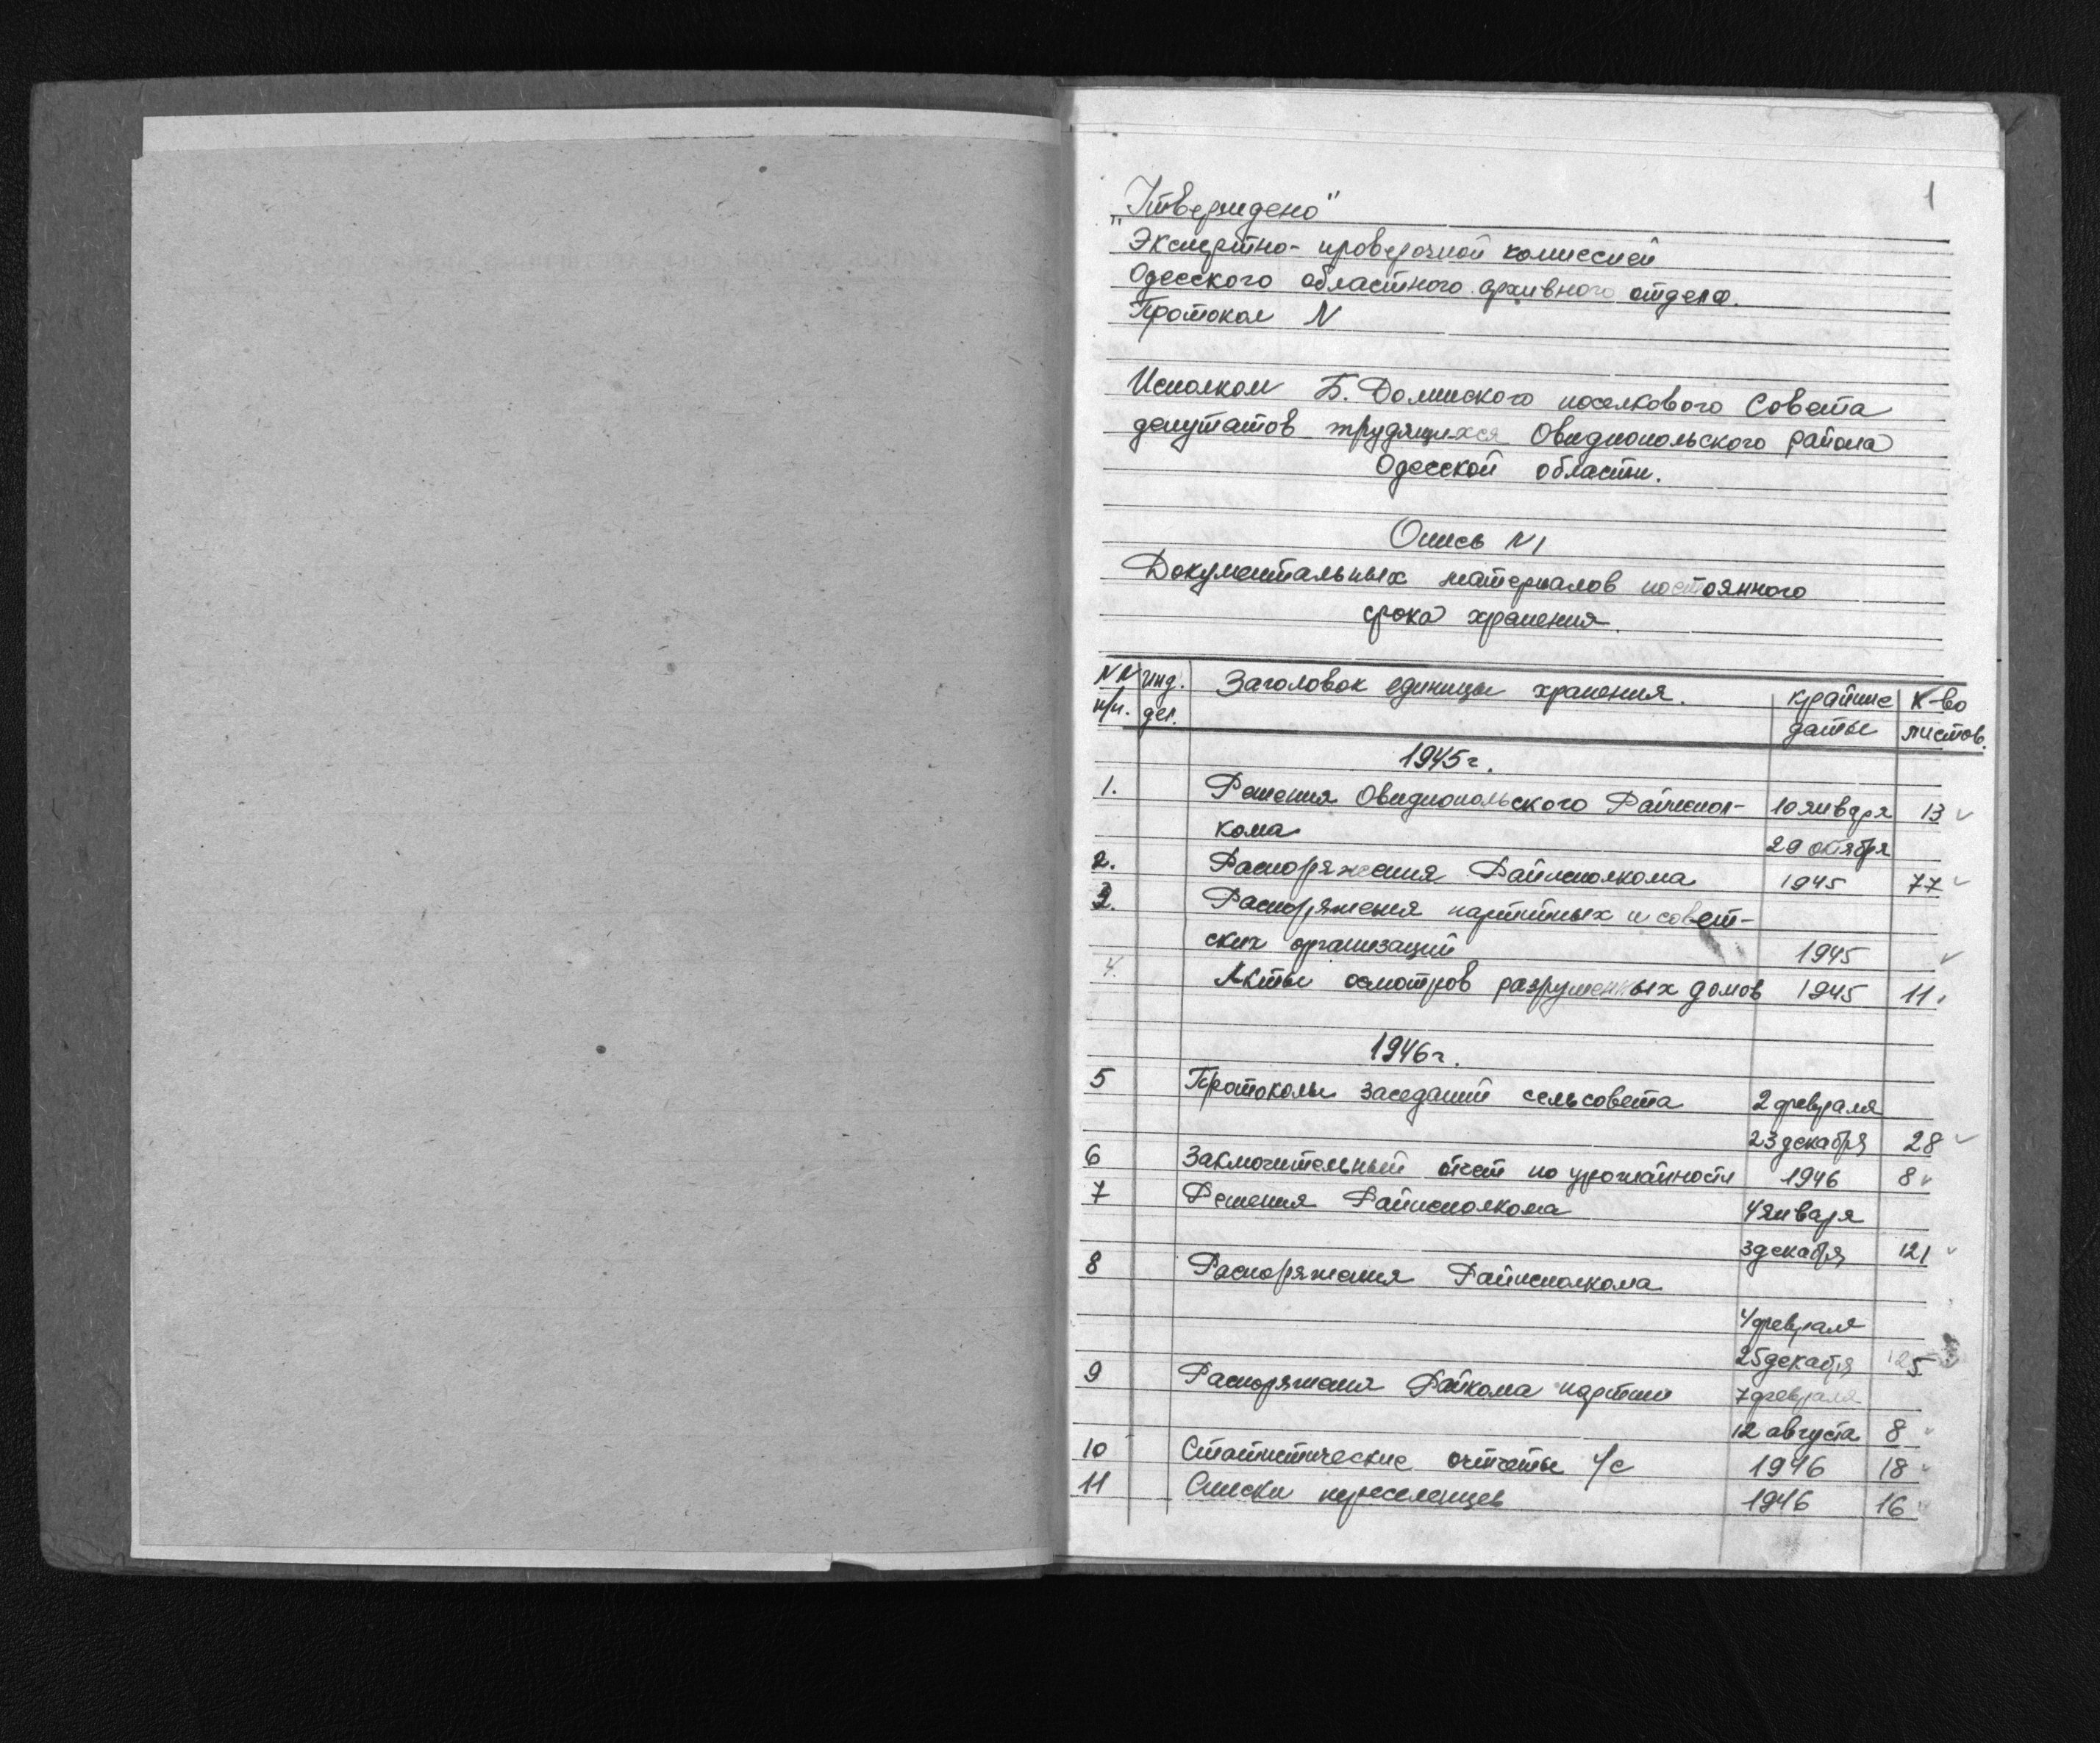 1
„Утверждено"
Экспертно-проверочной комиссией
Одесского областного архивного отдела.
Протокол N
Исполком Б. Долинского поселкового Совета
депутатов трудящихся Овидиопольского района
Одесской области.
Опись N 1
Документальных материалов постоянного
срока хранения.
NN п/п. Инд. дел. Заголовок единицы хранения. Крайние даты К-во листов.
1945г.
1. Решения Овидиопольского Райиспол- 10 января 13
кома 29 октября
2. Распоряжения Райисполкома 1945 77
3. Распоряжения партийных и совет-
ских организаций 1945
4. Акты осмотров разрушенных домов 1945 11
1946г.
5 Протоколы заседаний сельсовета 2 февраля
23 декабря 28
6 Заключительный отчет по урожайности 1946 8
7 Решения Райисполкома 4 января
3 декабря 121
8 Распоряжения Райисполкома
4 февраля
25 декабря 125
9 Распоряжения Райкома партии 7 февраля
12 августа 8
10 Статистические отчеты с/с 1946 18
11 Списки переселенцев 1946 16